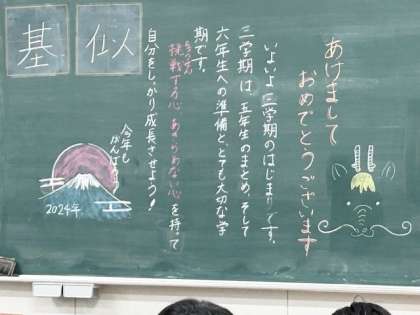 あけまして
おめでとうございます
いよいよ三学期のはじまりです。
三学期は、五年生のまとめ、そして
六年生への準備と、とても大切な学
期です。
挑戦する心 あきらめない心を持って
自分をしっかり成長させよう!
今年も
2024年
似
基